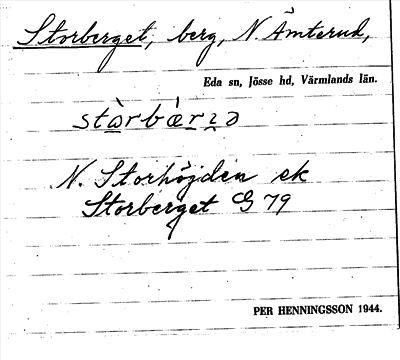 Storberget, berg, N. Ämterud,
Eda sn, Jösse hd, Värmlands län.
N. Storhöjden ek
Storberget G 79
PER HENNINGSSON 1944.